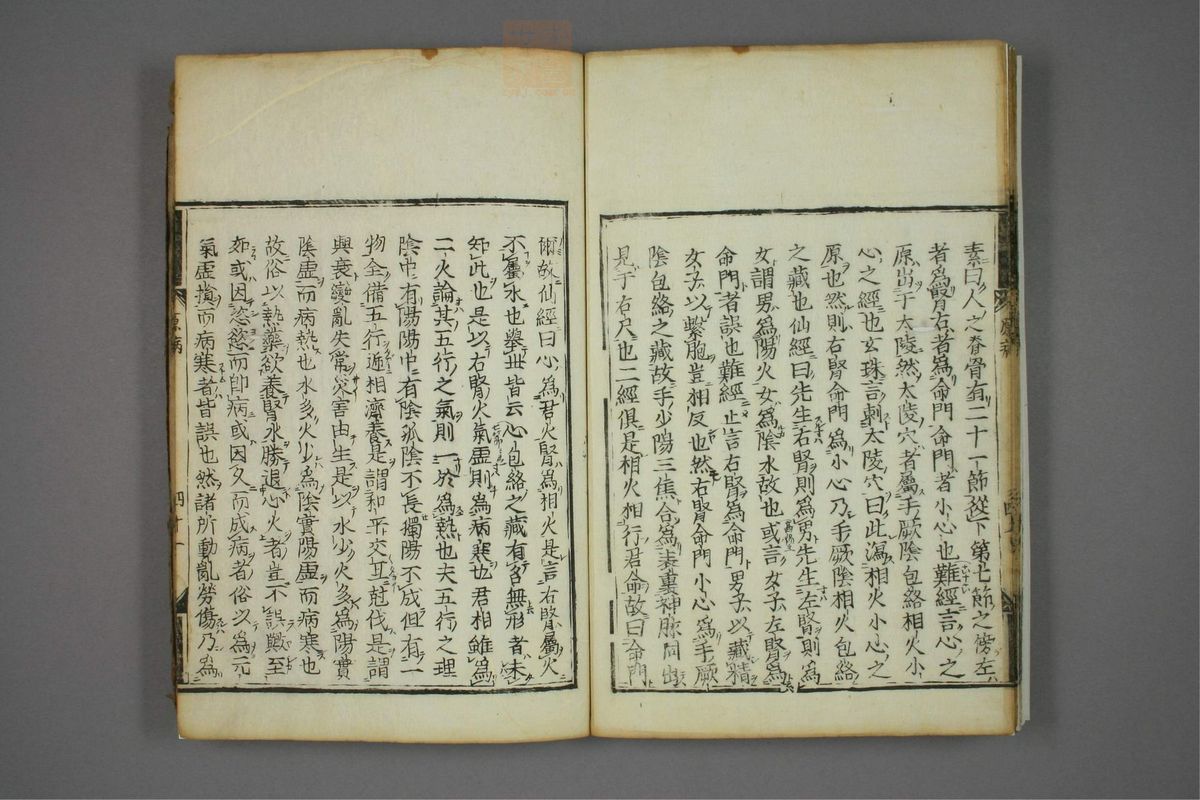 素曰人之脊骨有二十一節從下第七節之傍左
者為腎右者為命門命門者小心也難經言心之
原出于太陵然太陵穴者屬手厥陰包絡相火小
心之經也玄珠言刺太陵穴曰此瀉相火小心之
原也然則右腎命門為小心乃手厥陰相火包絡
之藏也仙經曰先生右腎則為男先生左腎則為
女謂男為陽火女為陰水故也或言女子左腎為
命門者誤也難經止言右腎為命門男子以藏精
女子以繫胞豈相反也然右腎命門小心為手厥
陰包絡之藏故手少陽三焦合為表裏神脉同出
見于右尺也二經俱是相火相行君命故曰命門
爾故仙經曰心為君火腎為相火是言右腎屬火
不屬水也舉世皆云心包絡之藏有名無形者未
知此也是以右腎火氣虛則為病寒也君相雖為
二火論其五行之氣則一於為熱也夫五行之理
陰中有陽陽中有陰孤陰不長獨陽不成但有一
物全備五行遞相濟養是謂和平交互尅伐是謂
興衰變亂失常災害由生是以水少火多為陽實
陰虛而病熱也水多火少為陰實陽虛而病寒也
故俗以熱藥欲養腎水勝退心火者豈不誤歟至
如或因恣慾而即病或因久而成病者俗以為元
氣虛損而病寒者皆誤也然諸所動亂勞傷乃為
原病
四十一